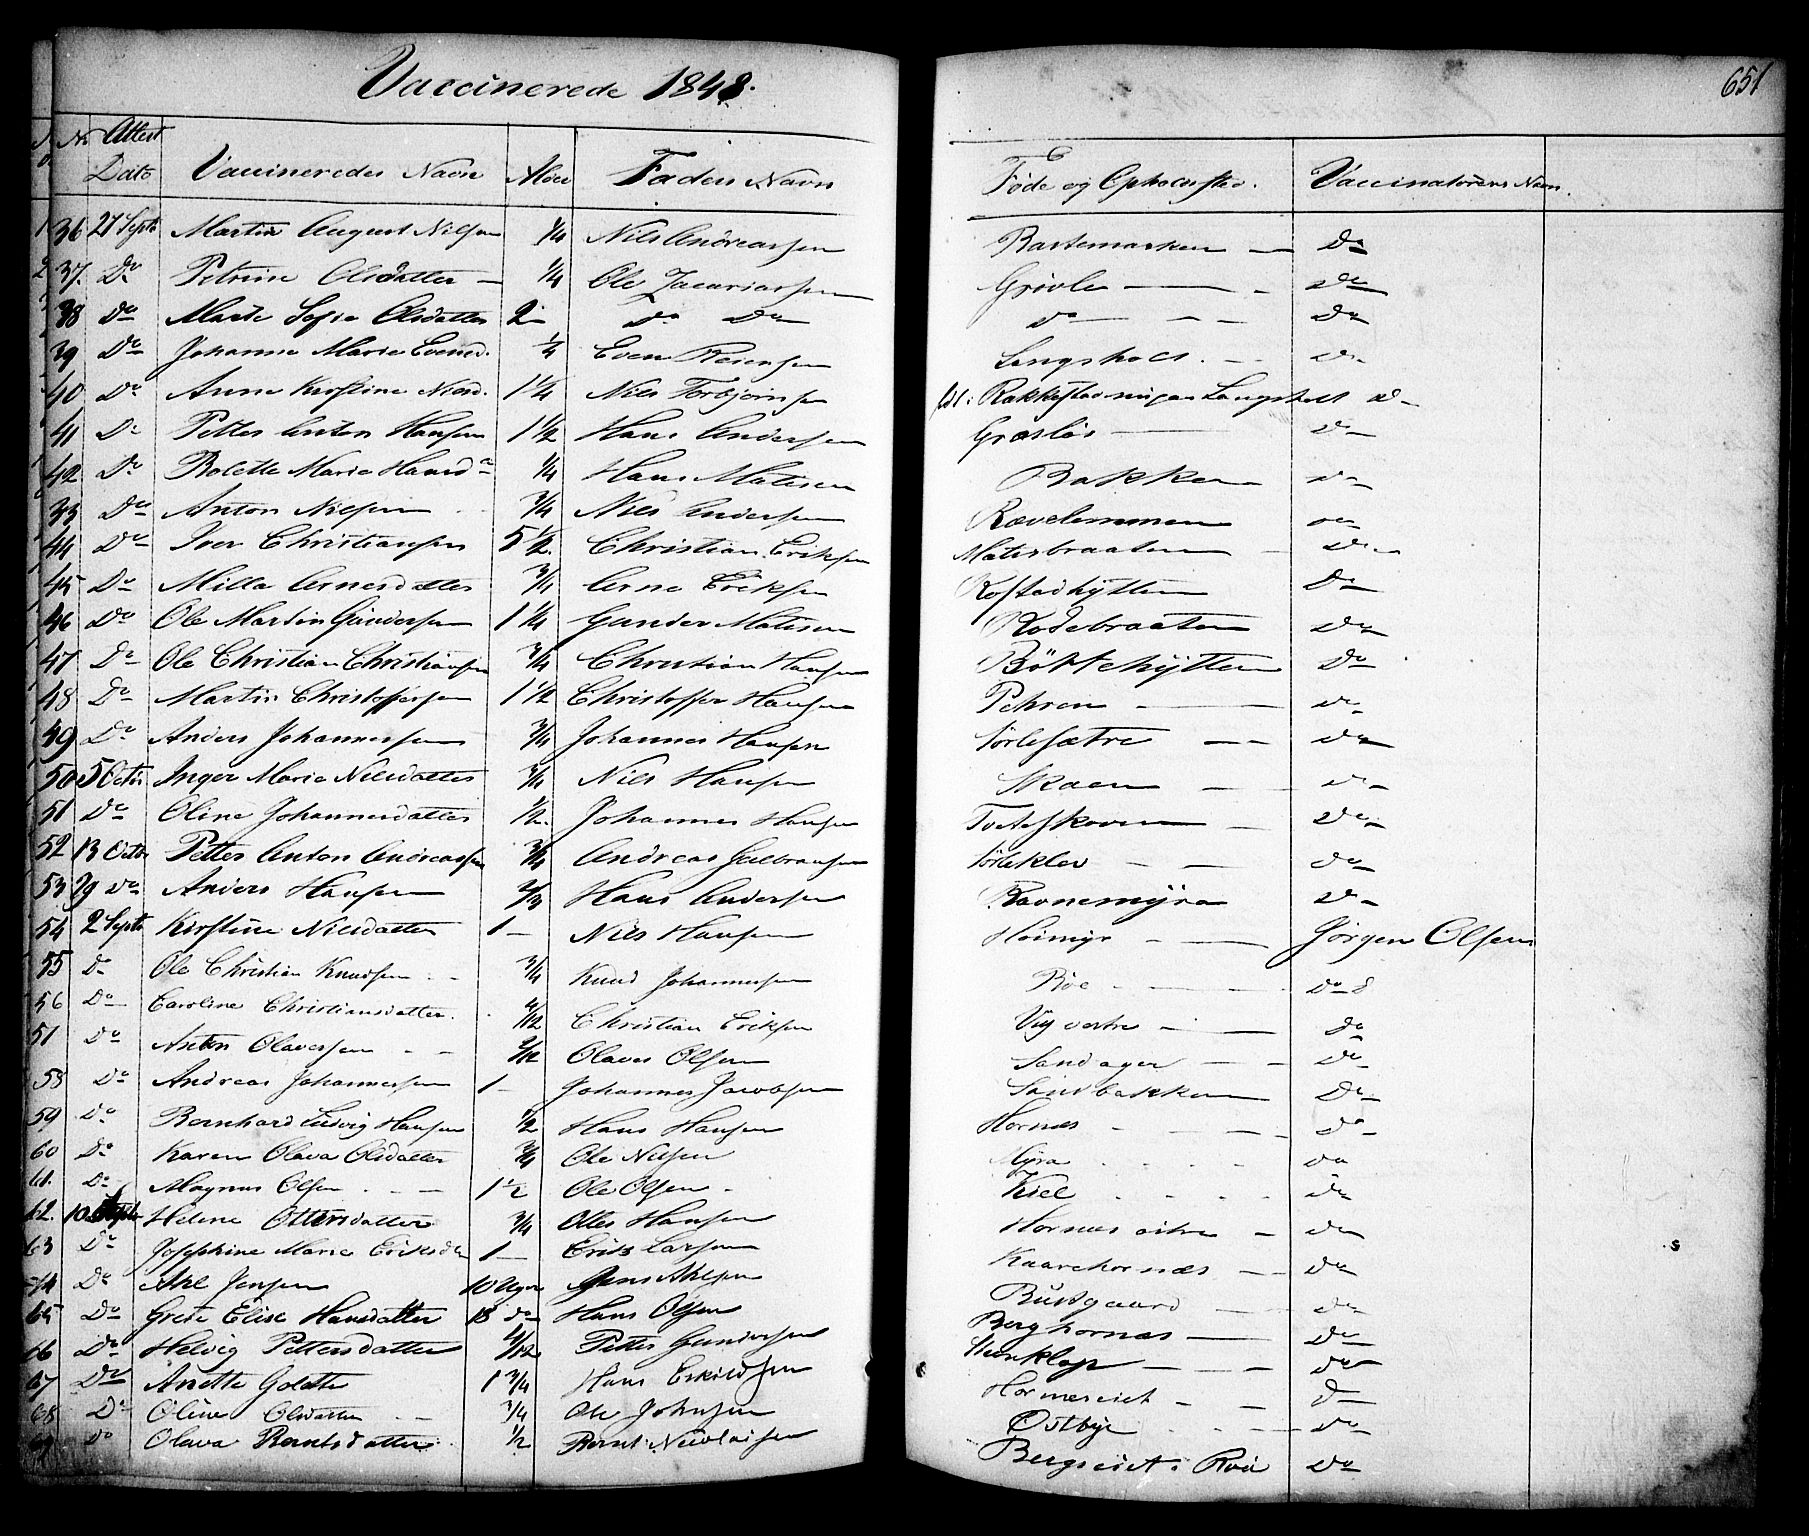 Vaccinerede 1848.
651
No Attest Dato Vaccineredes Navn Alder Faders Navn Føde og Opholdsted. Vaccinatørens Navn.
36 21 Septb Martin August Nilsen 1/4 Nils Andreassen Rastemarken Do
37. Do Petrine Olsdatter 1/4 Ole Zacariassen Grivle Do
38 Do Marte Sofie Olsdatter 2 Do Do Do Do
39 Do Johanne Marie Evensd. 1/4 Even Reiersen Langsholt. Do
40 Do Anne Kirstine Nilsd. 1 1/4 Nils Torbjørnsen fdt: Rakkestad nu paa Langsholt Do
41 Do Petter Anton Hansen 1 1/2 Hans Andersen Græsløs Do
42 Do Bolette Marie Hansd 1/4 Hans Matisen Bakken Do
33 Do Anton Nilsen 3/4 Nils Andersen Rævelemmen Do
44 Do Iver Christiansen 5 1/2 Christian Eriksen Matisbraaten Do
45 Do Milla Arnesdatter 3/4 Arne Eriksen Kostadhytten Do
46 Do Ole Martin Gundersen 1 1/4 Gunder Matisen Rødebraaten Do
47 Do Ole Christian Christiansen 3/4 Christian Hansen Bøttehytten Do
48 Do Martin Christoffersen 1 1/2 Christoffer Hansen Pehren Do
49 Do Anders Johannessen 3/4 Johannes Hansen Sørlesætre Do
50 5 Octbr Inger Marie Nilsdatter 3/4 Nils Hansen Skaen Do
51 Do Oline Johannesdatter 1/2 Johannes Hansen Tvetskoven Do
52 13 Octbr Petter Anton Andreassen 3/4 Andreas Gulbransen Sørleklev Do
53 29 Do Anders Hansen 2/3 Hans Andersen Ravnemyra Do
54 2 Septb Kirstine Nilsdatter 1 Nils Hansen Høimyr Jørgen Olsen
55 Do Ole Christian Knudsen 3/4 Knud Johannesen Röe Do
56 Do Caroline Christiansdatter. 4/12 Christian Eriksen Vig vestre Do
51 Do Anton Olavessen 2/12 Olaves Olsen Sandager Do
58 Do Andreas Johannessen 1 Johannes Jacobsen Sandbakken Do
59 Do Bernhard Ludvig Hansen 1/2 Hans Hansen Hornæs Do
60 Do Karen Olava Olsdatter 3/4 Ole Nilsen Myra Do
61. Do Magnus Olsen 1 1/2 Ole Olsen Kiel Do
62. 10 Septb Helene Ottersdatter 3/4 Otter Hansen Hornæs østre Do
63 Do Josephine Marie Eriksd 1 Erik Larsen Kaarehornæs Do
Do Axl Jensen 10 Uger Jens Axelsen Bustgaard Do
65 Do Grete Elise Hansdatter 18 do Hans Olsen Berghornæs Do
66 Do Helvig Pettersdatter 4/12 Petter Gundersen Do
67 Do Anette 1 3/4 Hans Eskildsen Hornæseiet Do
68 Do Oline Olsdatter 3/4 Ole Johnsen Østbye Do
Do Olava Berntsdatter 1/2 Bernt Nicolaisen Bergseiet i Röd Do